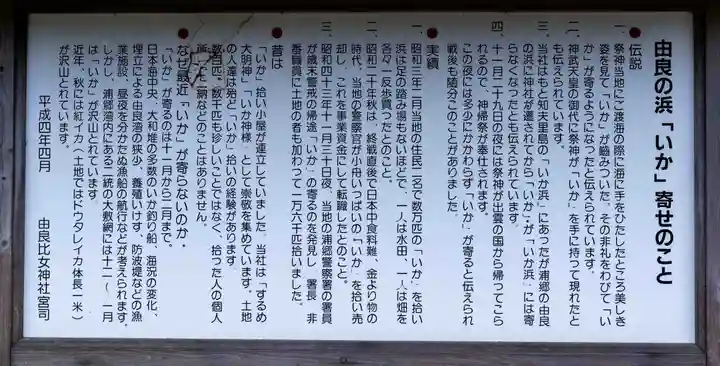 由良の浜「いか」寄せのこと
伝説
一、祭神当地にご渡海の際に海に手をひたしたところ美しき
姿を見て「いか」が齧みついた、その非礼をわびて「い
か」が寄るようになったと伝えられています。
二、神武天皇の御代に祭神が「いか」を手に持って現れたと
も伝えられています。
三、当社はもと知夫里島の「いか浜」にあったが浦郷の由良
の浜に神社が遷されてから「いか」が「いか浜」には寄
らなくなったとも伝えられています。
四、十一月二十九日の夜には祭神が出雲の国から帰ってこら
れるので、神帰祭が奉仕されます。
この夜には多少にかかわらず「いか」が寄ると伝えられ
戦後も随分このことがありました。
実績
一、昭和三年二月当地の住民二名で数万匹の「いか」を拾い
浜は足の踏み場もないほどで、一人は水田、一人は畑を
各々一反歩買つたとのこと。
二、昭和二十年秋は、終戦直後で日本中食料難、金より物の
時代、当地の警察官が小舟いっぱいの「いか」を拾い売
却し、これを事業資金にして転職したとのこと。
三、昭和四十三年十一月三十日夜、当地の浦郷警察署の署員
が歳末警戒の帰途「いか」の寄るのを発見し、署長　非
番職員に土地の者も加わって一万六千匹拾いました。
昔は
「いか」拾い小屋が連立していました。当社は「するめ
大明神」「いか神様」として崇敬を集めています。土地
の人達は殆ど「いか」拾いの経験があります。
数百匹、数千匹も珍しいことではなく、拾った人の個人
所　　　納などのことはありません。
なぜ最近「いか」が寄らないのか・
「いか」が寄るのは十一月から二月まで。
日本海中央、大和堆の多数のいか釣り船、海況の変化、
埋立による由良湾の狭少、養殖いけす、防波堤などの漁
業施設、昼夜を分かたぬ漁船の航行などが考えられます。
しかし、浦郷湾内にある二統の大敷網には十二〜一月
は「いか」が沢山とれています
近年、秋には紅イカ（土地ではドウタレイカ体長一米）
が沢山とれています。
平成四年四月　　由良比女神社宮司